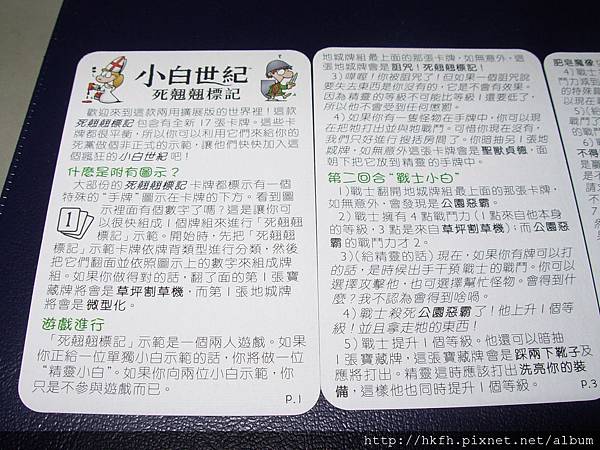 小白世紀
死翹翹標記
歡迎來到這款兩用擴展版的世界裡!這款
死翹翹標記包含有全新17張卡牌。這些卡
牌都很平衡,所以你可以利用它們來給你的
死黨做個非正式的示範,讓他們快快加入這
個瘋狂的小白世紀吧!
什麼是附有圖示?
大部份的死翹翹標記卡牌都標示有一個
特殊的"手牌"圖示在卡牌的下方。看到圖
示裡面有個數字了嗎?這是讓你可
以很快組成1個牌組來進行「死翹翹
標記」示範。開始時,先把「死翹翹
標記」示範卡牌依牌背類型進行分類,然後
把它們翻面並依照圖示上的數字來組成牌
組。如果你做得對的話,翻了面的第1張寶
藏牌將會是草坪割草機,而第1張地城牌
將會是微型化。
遊戲進行
「死翹翹標記」示範是一個兩人遊戲。如果
你正給一位單獨小白示範的話,你將做一位
"精靈小白"。如果你向兩位小白示範,你
只是不參與遊戲而已。
P.1
地城牌組最上面的那張卡牌,如無意外,這
張地城牌會是詛咒!死翹翹標記!
3)嘩喔!你被詛咒了!但如果一個詛咒說
要失去東西是你沒有的,它是不會有效果。
因為精靈的等級不可能比等級1還要低了,
所以他不會受到任何懲罰。
4)如果你有一隻怪物在手牌中,你可以現
在把牠打出並與牠戰鬥。可惜你現在沒有,
我們只好進行搜括房間了。你暗抽另1張地
城牌,如無意外這張卡牌會是聖獸貞德,面
朝下把它放到精靈的手牌中。
第二回合"戰士小白"
1)戰士翻開地城牌組最上面的那張卡牌,
如無意外,會發現是公園惡霸。
2)戰士擁有4點戰鬥力(1點來自他本身
的等級,3點是來自草坪割草機);而公園惡
霸的戰鬥力才2。
3)(給精靈的話)現在,如果你有牌可以打
的話,是時候出手干預戰士的戰鬥。你可以
選擇攻擊他,也可選擇幫忙怪物。會得到什
麼?我不認為會得到啥喎。
4)戰士殺死公園惡霸了!他上升1個等
級!並且拿走牠的東西!
5)戰士提升1個等級。他還可以暗抽
1張寶藏牌,這張寶藏牌會是踩兩下靴子及
應將打出。精靈這時應該打出洗亮你的裝
備,這樣他也同時提升1個等級。
P.3
肥皂魔像
http://hkfh.pixnet.net/album